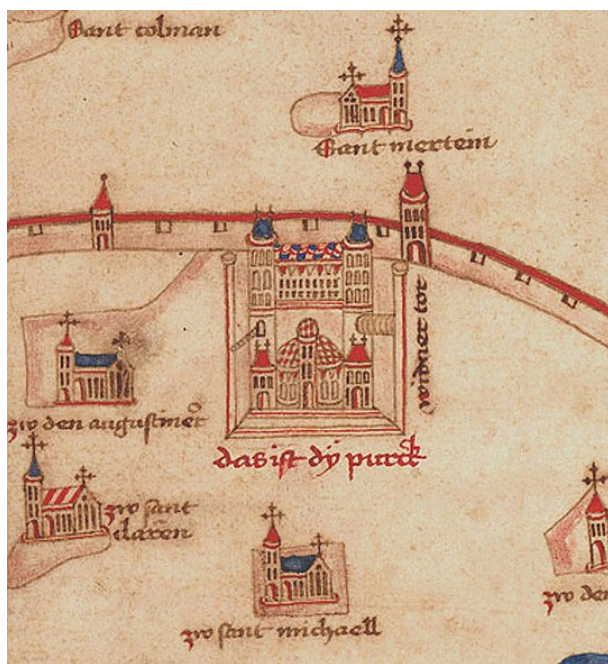 Sant colman
Sant mertein
widner tor
zw den augustinern
das ist dy purck
zw sant
claren
zw sant michaell
zw den